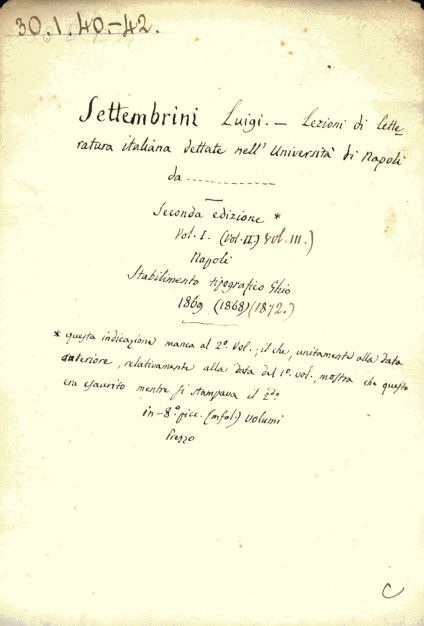 30.1.40-42.
Settembrini Luigi. — Lezioni di lette=
ratura italiana dettate nell' Università di Napoli
da ----------------
Seconda edizione *
Vol. I. (Vol. II) Vol. III.)
Napoli
Stabilimento tipografico Ghio
1869 (1868) (1872.)
* questa indicazione manca al 2º. Vol.; il che, unitamente alla data
anteriore, relativamente alla data del 1º. vol., mostra che questo
era esaurito mentre si stampava il 2do
in-8.º picc. volumi
Prezzo
C